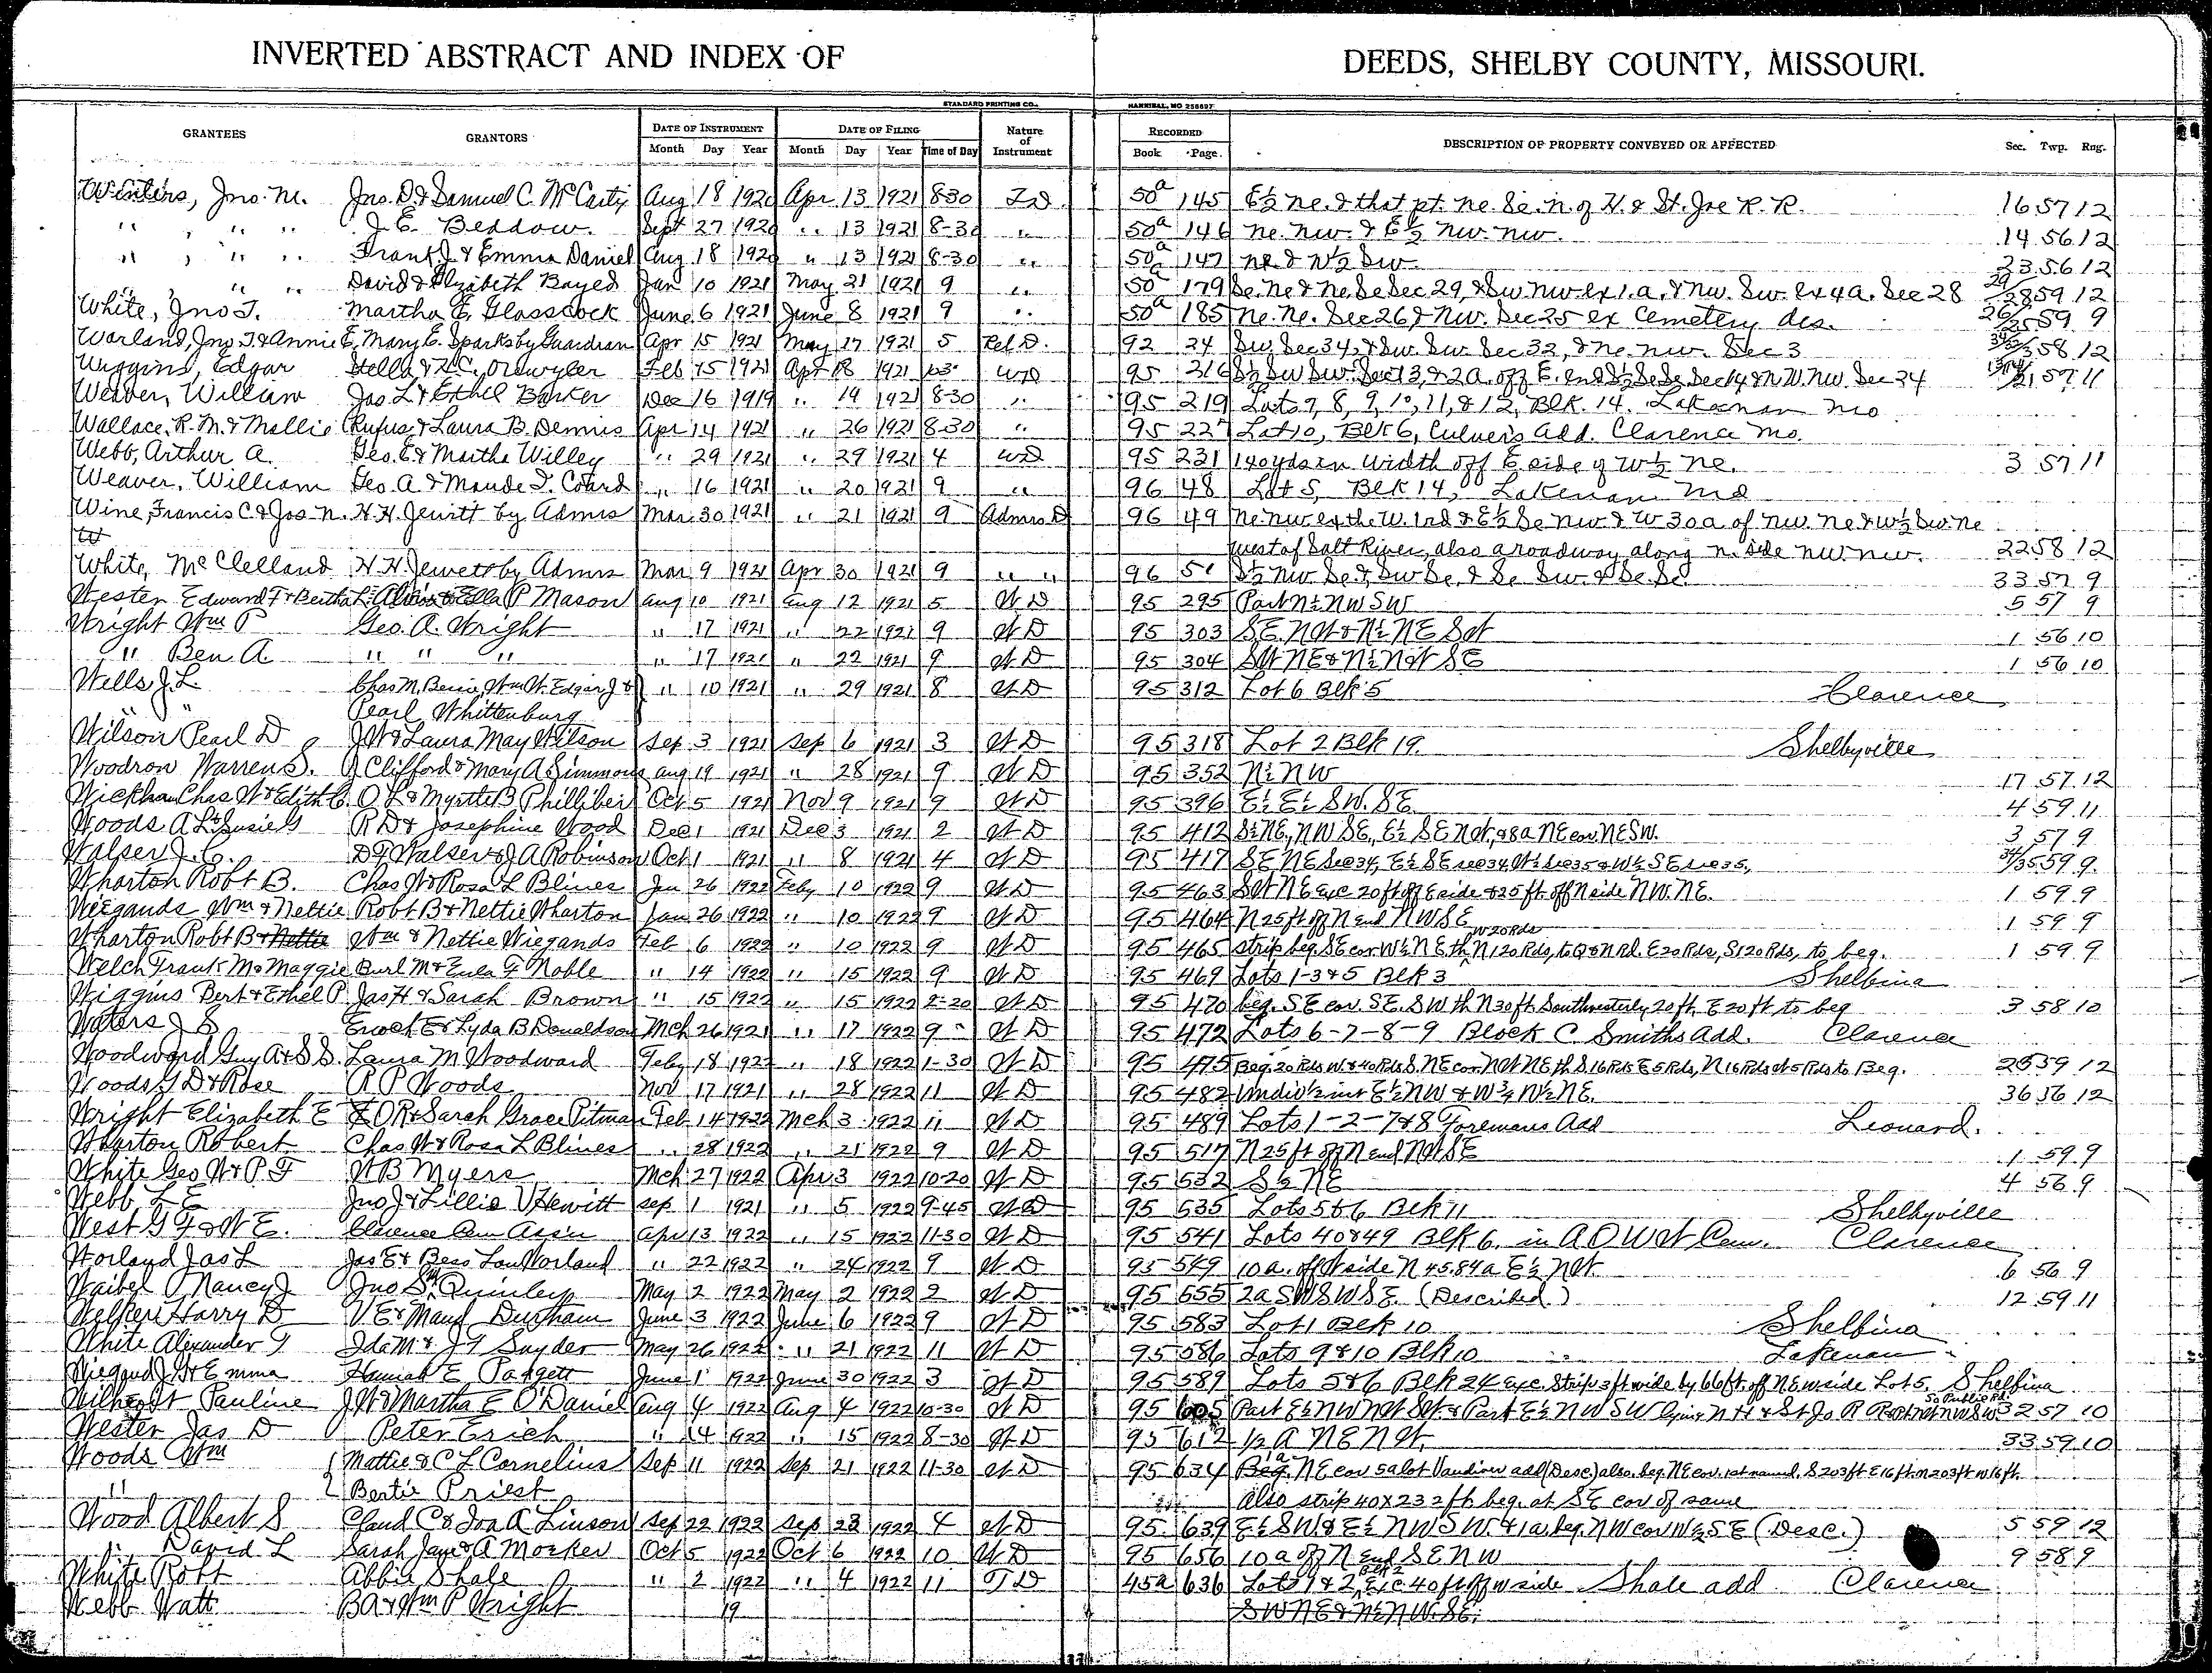 INVERTED ABSTRACT AND INDEX OF DEEDS, SHELBY COUNTY, MISSOURI.
STANDARD PRINTING CO., HANNIBAL, MO 258897
GRANTEES GRANTORS DATE OF INSTRUMENT DATE OF FILING Nature of Instrument RECORDED DESCRIPTION OF PROPERTY CONVEYED OR AFFECTED Sec. Twp. Rng.
Month Day Year Month Day Year Time of Day Book Page
Winters, Jno. M. Jno. D. & Samuel C. McCarty Aug 18 1920 Apr 13 1921 8-30 50a 145 E½ ne. & that pt. ne. Se. n. of H. & St. Joe R. R. 16 57 12
" , " " J. E. Beddow. Sept 27 1920 " 13 1921 8-30 " 50a 146 ne. nw. & E½ nw. nw. 14 56 12
" , " " Frank J. & Emma Daniel Aug 18 1920 " 13 1921 8-30 " 50a 147 ne & W½ Sw. 23 56 12
" , " " David & Elizabeth Bayed Jan 10 1921 May 21 1921 9 " 50a 179 Se. Ne & Ne. Se Sec 29, & Sw nw. ex 1.a. & nw. Sw. ex 4a. Sec 28 29/28 59 12
White, Jno T. Martha E. Glasscock June 6 1921 June 8 1921 9 " 50a 185 Ne. Ne. Sec 26 & Nw. Sec 25 ex Cemetery des. 26/25 59 9
Worland, Jno. T. & Annie E. Mary E. Sparks by Guardian Apr 15 1921 May 17 1921 5 Rel D. 92 24 Sw. Sec 34, & Sw. Sw. Sec 32, & ne. nw. Sec 3 58 12
Wiggins, Edgar Stella & H.C. Orewyler Feb 15 1921 Apr 18 1921 WD 95 216 S½ Sw Sw. Sec 13, & 2a. off E. end S½ Se Se Sec 14 & N.W. NW. Sec 24 57 11
Weaver, William Jas. L. & Ethel Barker Dec 16 1919 " 19 1921 8-30 " 95 219 Lots 7, 8, 9, 10, 11, & 12, Blk. 14. Lakenan Mo
Wallace, R. M. & Mollie Rufus & Laura B. Dennis Apr 14 1921 " 26 1921 8-30 " 95 227 Lot 10, Blk 6, Culver's Add. Clarence Mo.
Webb, Arthur A. Geo. E. & Martha Willey " 29 1921 " 29 1921 4 WD 95 231 140 yds in width off E side of W½ ne. 3 57 11
Weaver, William Geo. A & Maude I. Coard " 16 1921 " 20 1921 9 " 96 48 Lot 5, Blk 14, Lakenan Mo
Wine, Francis C & Jos N. H. H. Jewitt by Admrs Mar 30 1921 " 21 1921 9 Admrs D 96 49 Ne nw ex the W. 1 rd & E½ Se nw & W 30 a. of nw. ne & W½ Sw ne
west of Salt River, also a roadway along n. side nw. nw. 22 58 12
White, McClelland H. H. Jewett by Admrs Mar 9 1921 Apr 30 1921 9 " " 96 51 S½ Nw Se & Sw Se, & Se Sw. & Se Se 33 57 9
Wester Edward F & Bertha L. Alvin & Ella P Mason Aug 10 1921 Aug 12 1921 5 W D 95 295 Part N½ NW SW 5 57 9
Wright Wm P Geo. A. Wright " 17 1921 " 22 1921 9 W D 95 303 S.E. NW & N½ NE SW 1 56 10
" Ben. A " " " " 17 1921 " 22 1921 9 W D 95 304 SW NE & N½ NW SE 1 56 10
Wells J. L. Chas M, Bessie, Wm W. Edgar J & " 10 1921 " 29 1921 8 W D 95 312 Lot 6 Blk 5 Clarence
" " Pearl Whittenburg
Wilson Pearl D J W & Laura May Wilson Sep 3 1921 Sep 6 1921 3 W D 95 318 Lot 2 Blk 19. Shelbyville
Woodrow Warren S. J Clifford & Mary A Simmons Aug 19 1921 " 28 1921 9 W D 95 352 N½ NW 17 57 12
Wickham Chas W & Edith C. O L & Myrtle B Philliber Oct 5 1921 Nov 9 1921 9 W D 95 396 E½ E½ SW. SE 4 59 11
Woods A L & Susie G R D & Josephine Wood Dec 1 1921 Dec 3 1921 2 W D 95 412 S½ NE, NW SE, E½ SE NW, 98a NE cor. NE SW. 3 57 9
Walser J. C. D F Walser & J A Robinson Oct 1 1921 " 8 1921 4 W D 95 417 SE NE Sec 34, E½ SE sec 34, W½ sec 35 & W½ SE sec 35, 34/35 59 9
Wharton Robt B. Chas W & Rosa L Blines Jan 26 1922 Feby 10 1922 9 W D 95 463 SW NE exc 20 ft off E side & 25 ft. off N side NW. NE. 1 59 9
Wiegands Wm & Nettie Robt B & Nettie Wharton Jan 26 1922 " 10 1922 9 W D 95 464 N 25 ft off N end NW SE 1 59 9
Wharton Robt B & Nettie Wm & Nettie Wiegands Feb 6 1922 " 10 1922 9 W D 95 465 strip beg. SE cor W½ NE th W 20 Rds N 120 Rds, to Q & N Rd. E 20 Rds, S 120 Rds, to beg. 1 59 9
Welch Frank M & Maggie Burl M & Eula F Noble " 14 1922 " 15 1922 9 W D 95 469 Lots 1-3 & 5 Blk 3 Shelbina
Wiggins Bert & Ethel P Jas H & Sarah Brown " 15 1922 " 15 1922 2-20 W D 95 470 beg. SE cor. SE. SW th N 30 ft. Southwesterly 20 ft, E 20 ft to beg 3 58 10
Waters J S Enoch E & Lyda B Donaldson Mch 26 1921 " 17 1922 9 W D 95 472 Lots 6-7-8-9 Block C Smiths Add. Clarence
Woodward Guy A & S S. Laura M Woodward Feby 18 1922 " 18 1922 1-30 W D 95 475 Beg. 20 Rds W. & 40 Rds S. NE cor. NW NE th S 16 Rds E 5 Rds, N 16 Rds W 5 Rds to Beg. 59 12
Woods G D & Rose R P Woods Nov 17 1921 " 28 1922 11 W D 95 482 Undiv ½ int E½ NW & W¾ N½ NE. 36 56 12
Wright Elizabeth E O R & Sarah Grace Pitman Feb 14 1922 Mch 3 1922 11 W D 95 489 Lots 1-2-7 & 8 Foremans Add Leonard.
Wharton Robert Chas W & Rosa L Blines " 28 1922 " 21 1922 9 W D 95 517 N 25 ft off N end NW SE 1 59 9
White Geo W & P F W B Myers Mch 27 1922 Apr 3 1922 10-20 W D 95 532 S½ NE 4 56 9
Webb L E Jno J & Lillie V Hewitt Sep 1 1921 " 5 1922 9-45 W D 95 535 Lots 5 & 6 Blk 11 Shelbyville
West G F & W E. Clarence Cem Assn Apr 13 1922 " 15 1922 11-30 W D 95 541 Lots 40 & 49 Blk 6, in A O W W Cem. Clarence
Worland Jas L Jas E & Bess Lou Worland " 22 1922 " 24 1922 9 W D 95 549 10 a. off W side N 45.84a E½ NW 6 56 9
Waibel Nancy J Jno S Quinley May 2 1922 May 2 1922 2 W D 95 555 2a SW SW SE. (Described) 12 59 11
Welker Harry D V E & Maud Durham June 3 1922 June 6 1922 9 W D 95 583 Lot 1 Blk 10 Shelbina
White Alexander T Ida M & J F Snyder May 26 1922 " 21 1922 11 W D 95 586 Lots 9 & 10 Blk 10 Lakenan
Wiegand J W & Emma Hannah E Padgett June 1 1922 June 30 1922 3 W D 95 589 Lots 5 & 6 Blk 24 exc. Strip 3 ft wide by 66 ft. off N E w side Lot 5. Shelbina
Wilhoit Pauline J W & Martha E O'Daniel Aug 4 1922 Aug 4 1922 10-30 W D 95 605 Part E½ NW & Part E½ NW SW lying N H & St Jo R R 32 57 10
Wester Jas D Peter Erich " 14 1922 " 15 1922 8-30 W D 95 612 ½ A NE NW. 33 59 10
Woods Wm Mattie & C L Cornelius Sep 11 1922 Sep 21 1922 11-30 W D 95 634 Beg. NE cor 5a lot Vandiver add (Desc.) also. beg. NE cor. 1st named. S 203 ft E 16 ft. N 203 ft W 16 ft.
" Bertie Priest Also strip 40 X 232 ft. beg. at SE cor of same
Wood Albert S Claud C & Iva A Linson Sep 22 1922 Sep 23 1922 4 W D 95 639 E½ SW & E½ NW SW. & 1a. beg. NW cor W½ SE (Desc.) 5 59 12
" David L Sarah Jane & A Morker Oct 5 1922 Oct 6 1922 10 W D 95 656 10 a off N end SE NW 9 58 9
White Robt Abbie Shale " 2 1922 " 4 1922 11 T D 45a 636 Lots 1 & 2, Blk 2 Exc. 40 ft off W side Shale add Clarence
Webb Watt B A & Wm P Wright 19 SW NE & N½ NW. SE.